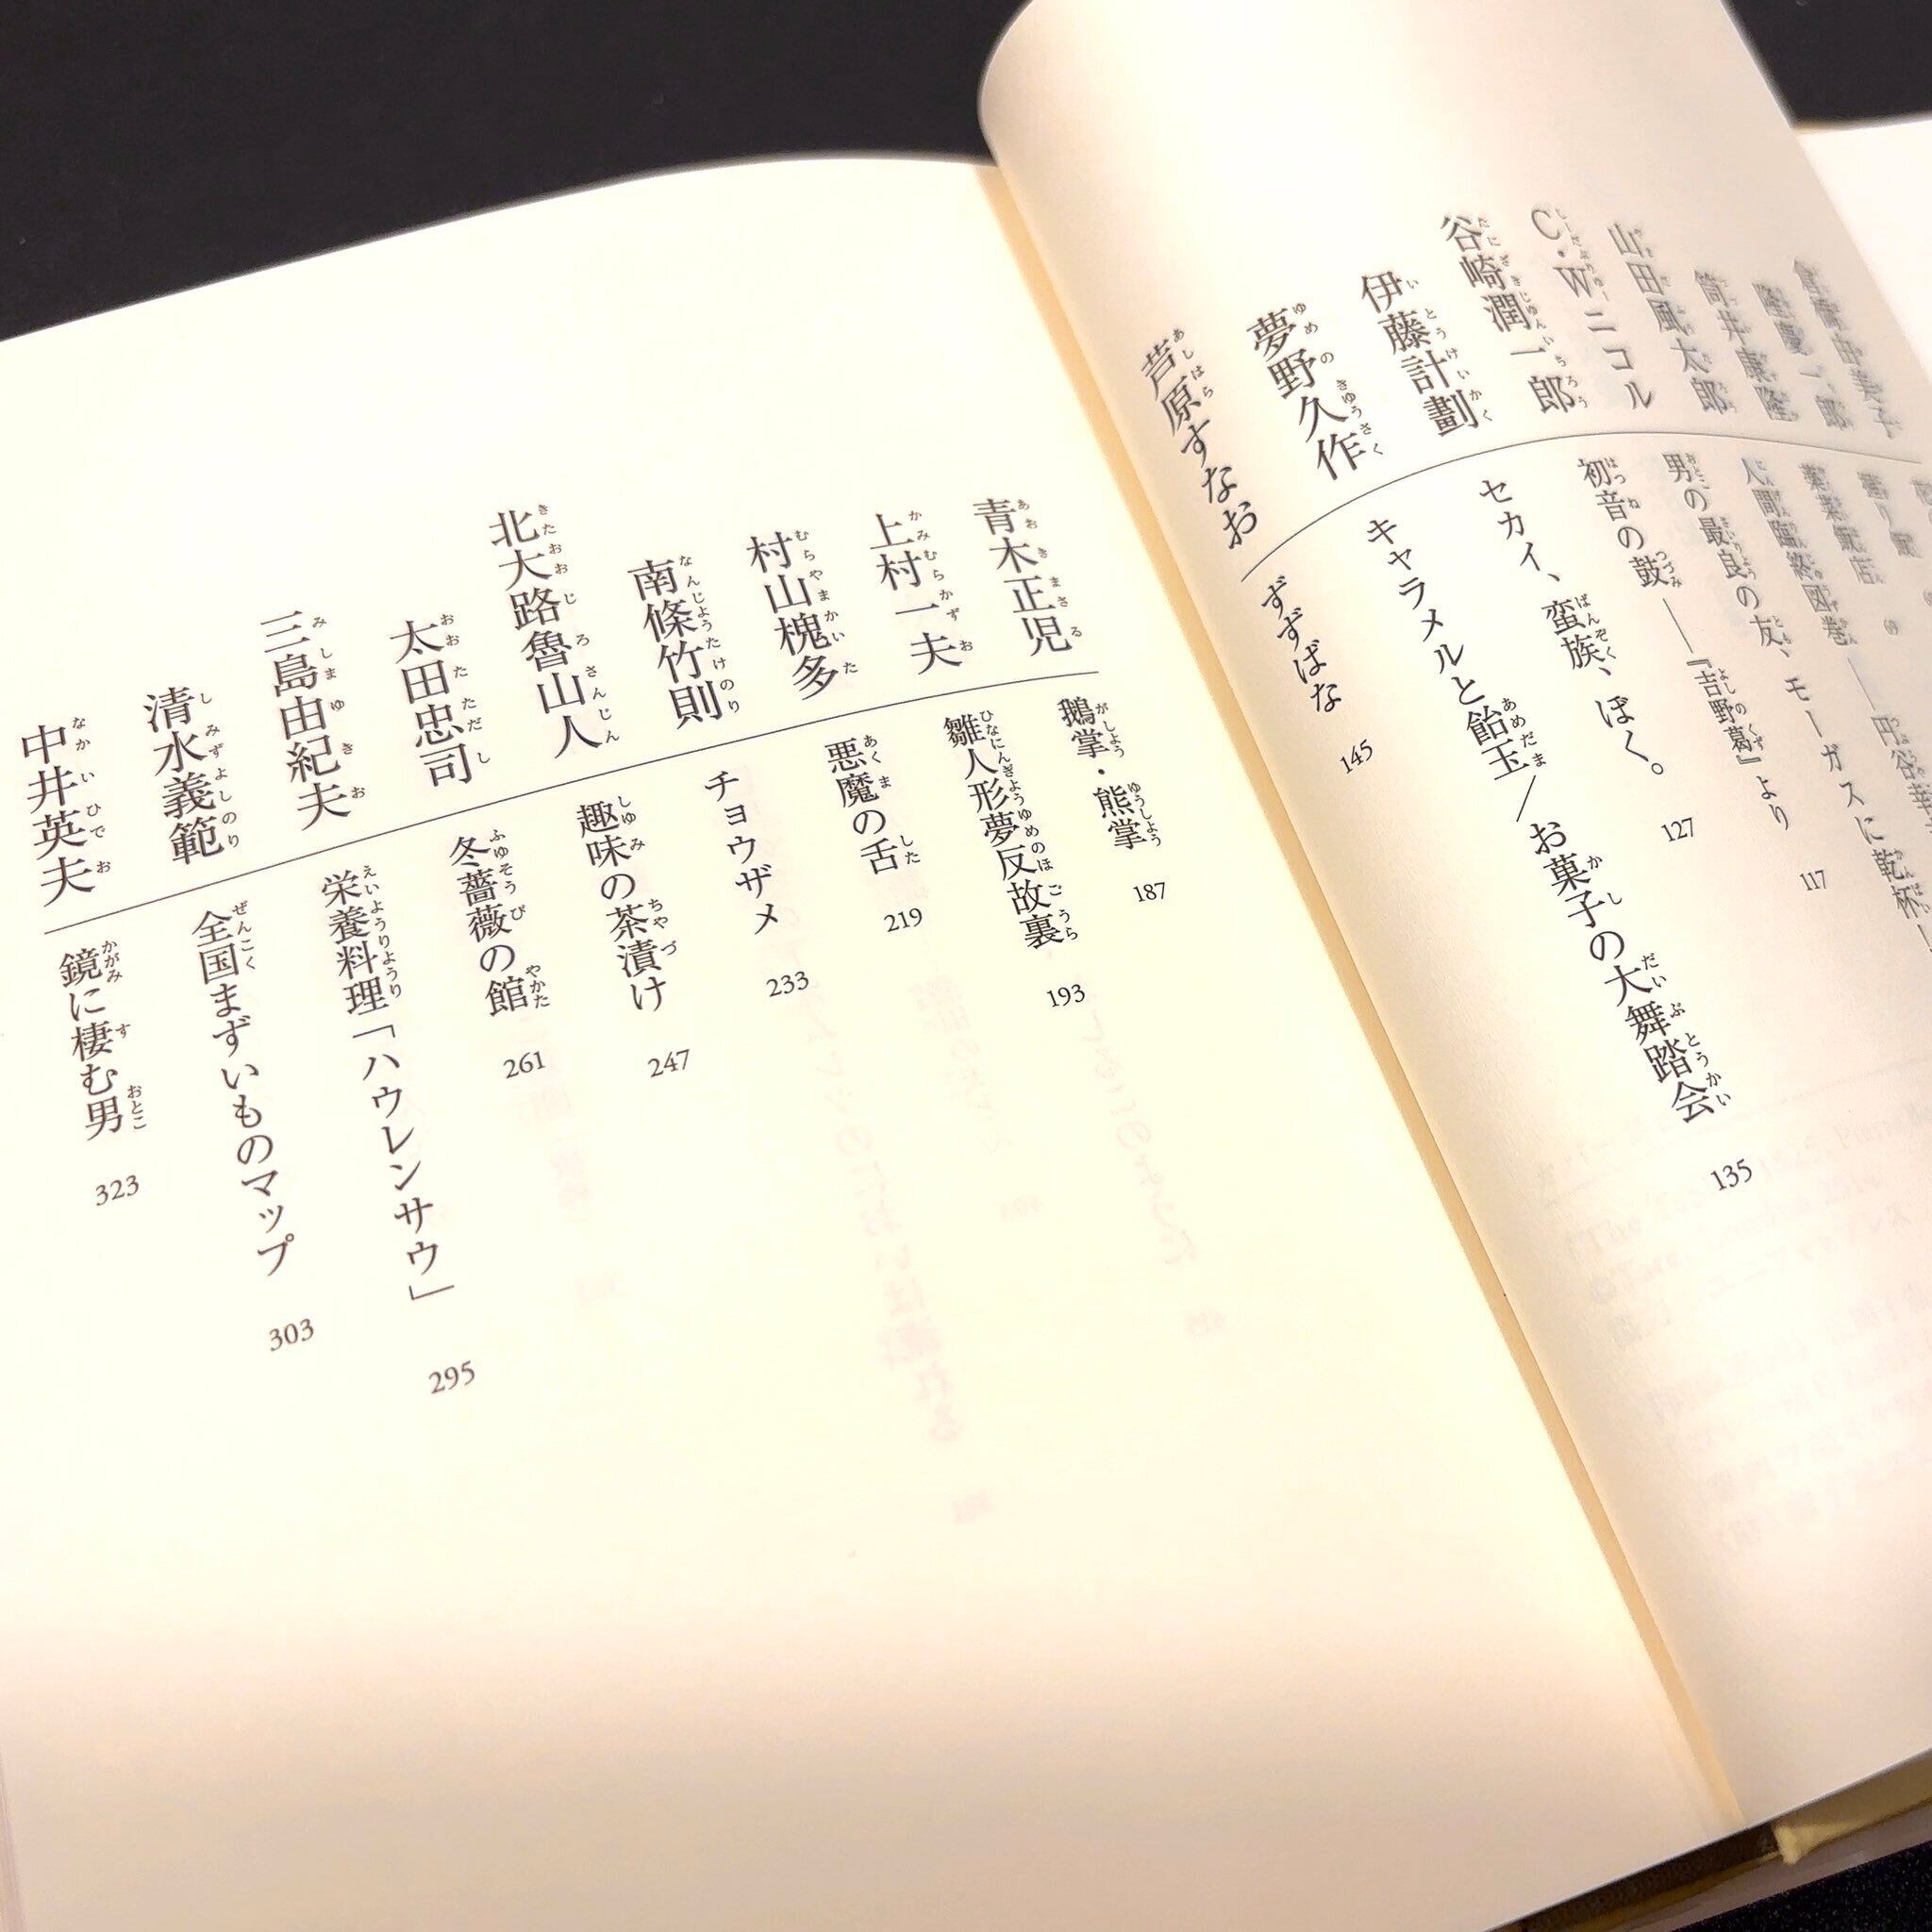 山田風太郎 人間臨終図巻――円谷幸吉
C・Wニコル 男の最良の友、モーガスに乾杯
谷崎潤一郎 初音の鼓――『吉野葛』より 117
伊藤計劃 セカイ、蛮族、ぼく。 127
夢野久作 キャラメルと飴玉/お菓子の大舞踏会 135
芦原すなお ずずばな 145
青木正児 鵝掌・熊掌 187
上村一夫 雛人形夢反故裏 193
村山槐多 悪魔の舌 219
南條竹則 チョウザメ 233
北大路魯山人 趣味の茶漬け 247
太田忠司 冬薔薇の館 261
三島由紀夫 栄養料理「ハウレンサウ」 295
清水義範 全国まずいものマップ 303
中井英夫 鏡に棲む男 323